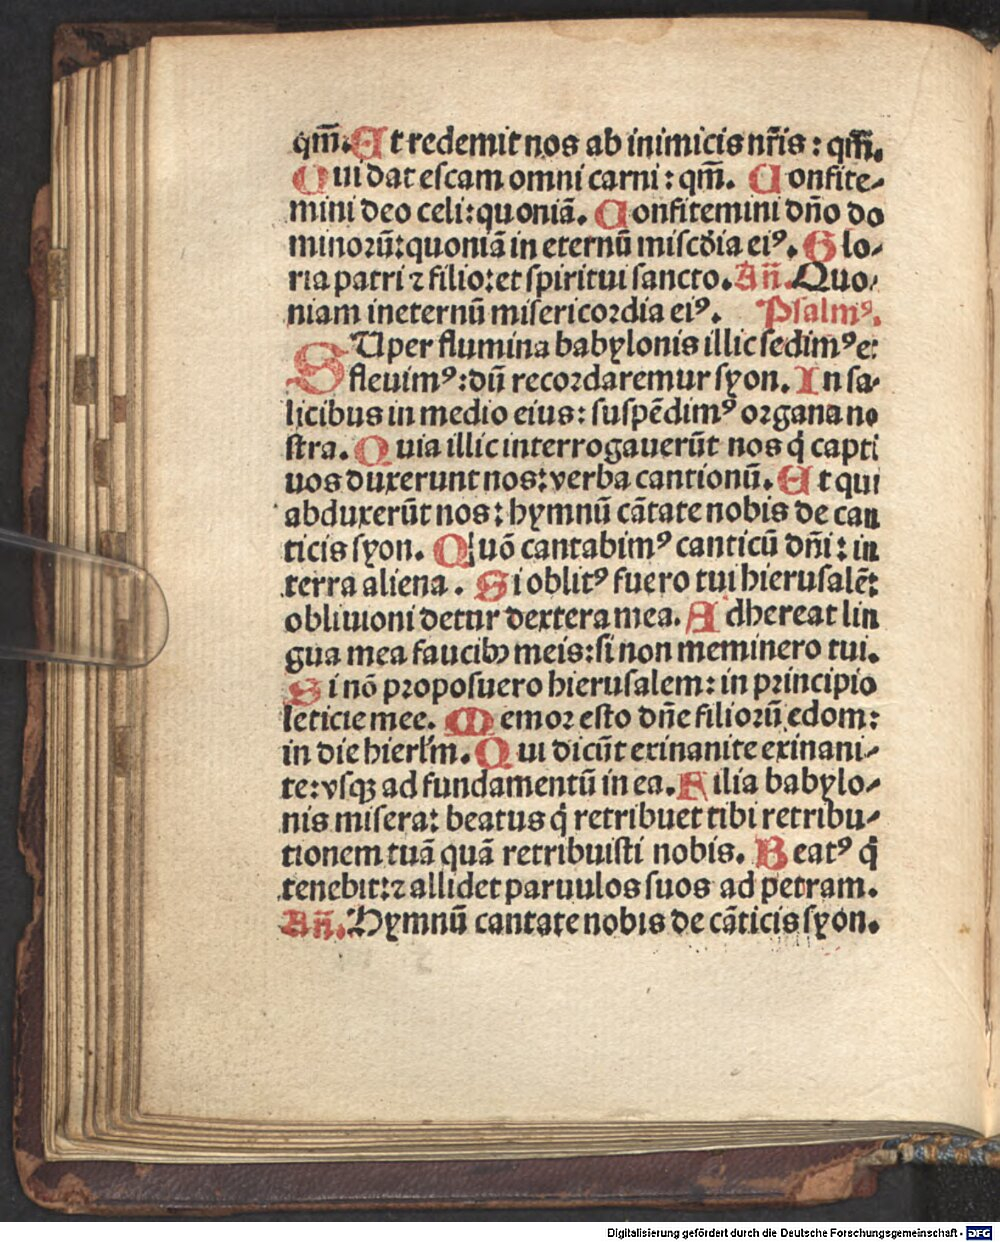 qm̄. Et redemit nos ab inimicis nr̄is : qm̄.
Qui dat escam omni carni : qm̄. Confite-
mini deo celi: quoniā. Confitemini dn̄o do
minorū: quoniā in eternū miscd̄ia eiꝰ. Glo-
ria patri ⁊ filio: et spiritui sancto. An̄. Quo-
niam in eternū misericordia eiꝰ. Psalmꝰ.
SUper flumina babylonis illic sedimꝰ e:
fleuimꝰ: dū recordaremur syon. In sa-
licibus in medio eius: suspēdimꝰ organa no
stra. Quia illic interrogauerūt nos q̇ capti
uos duxerunt nos: verba cantionū. Et qui
abduxerūt nos: hymnū cātate nobis de can
ticis syon. Quō cantabimꝰ canticū dn̄i: in
terra aliena. Si oblitꝰ fuero tui hierusalē:
obliuioni detur dextera mea. Adhereat lin
gua mea faucibꝫ meis: si non meminero tui.
Si nō proposuero hierusalem: in principio
leticie mee. Memor esto dn̄e filiorū edom:
in die hierl'm. Qui dicūt exinanite exinani-
te: vsqꝫ ad fundamentū in ea. Filia babylo-
nis misera: beatus q̇ retribuet tibi retribu-
tionem tuā quā retribuisti nobis. Beatꝰ q̇
tenebit: ⁊ allidet paruulos suos ad petram.
An̄. Hymnū cantate nobis de cāticis syon.
Digitalisierung gefördert durch die Deutsche Forschungsgemeinschaft - DFG